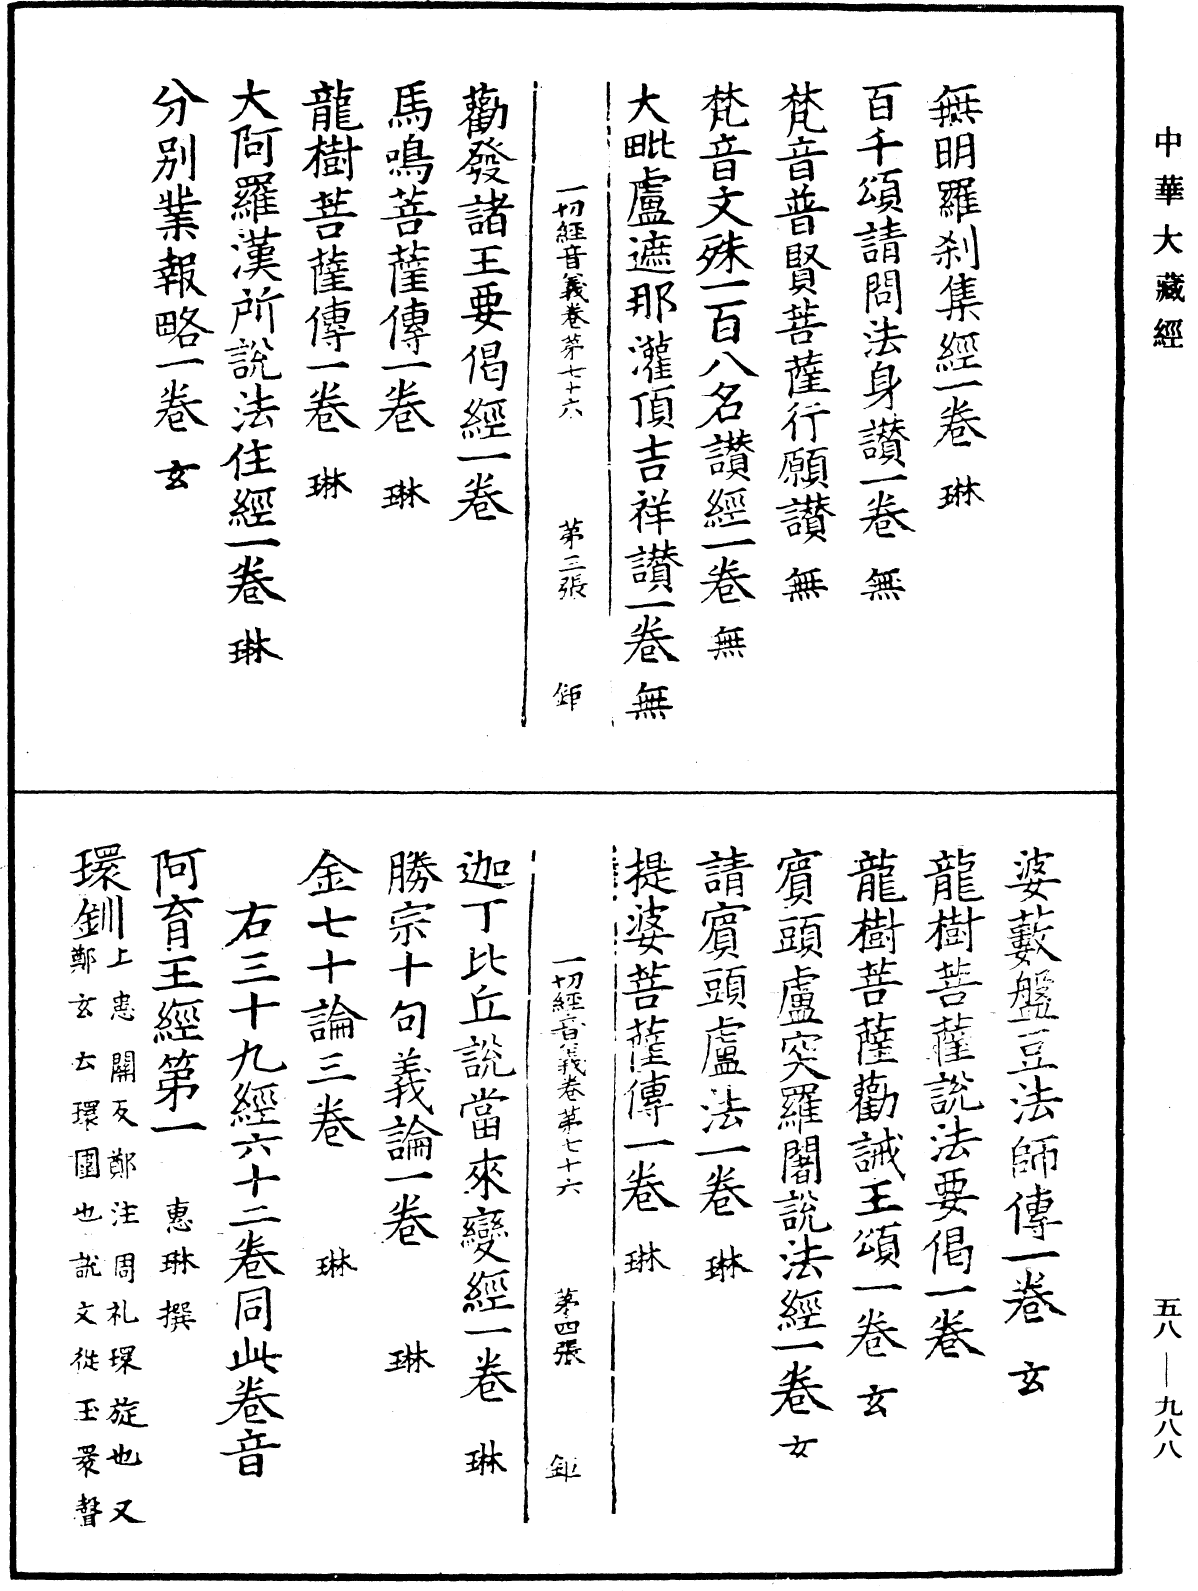 中華大藏經
無明羅刹集經一卷 琳
百千頌請問法身讚一卷 無
梵音普賢菩薩行願讚 無
梵音文殊一百八名讚經一卷 無
大毗盧遮那灌頂吉祥讚一卷 無
一切經音義卷第七十六 第三張 鉅
勸發諸王要偈經一卷
馬鳴菩薩傳一卷 琳
龍樹菩薩傳一卷 琳
大阿羅漢所說法住經一卷 琳
分別業報略一卷 玄
婆藪盤豆法師傳一卷 玄
龍樹菩薩說法要偈一卷
龍樹菩薩勸誡王頌一卷 玄
賓頭盧突羅闍說法經一卷 女
請賓頭盧法一卷 琳
提婆菩薩傳一卷 琳
一切經音義卷第七十六 第四張 鉅
迦丁比丘說當來變經一卷 琳
勝宗十句義論一卷 琳
金七十論三卷 琳
右三十九經六十二卷同此卷音
阿育王經第一 惠琳撰
環釧上患關反鄭注周礼環旋也又
鄭玄云環圍也說文從玉睘聲
五八—九八八